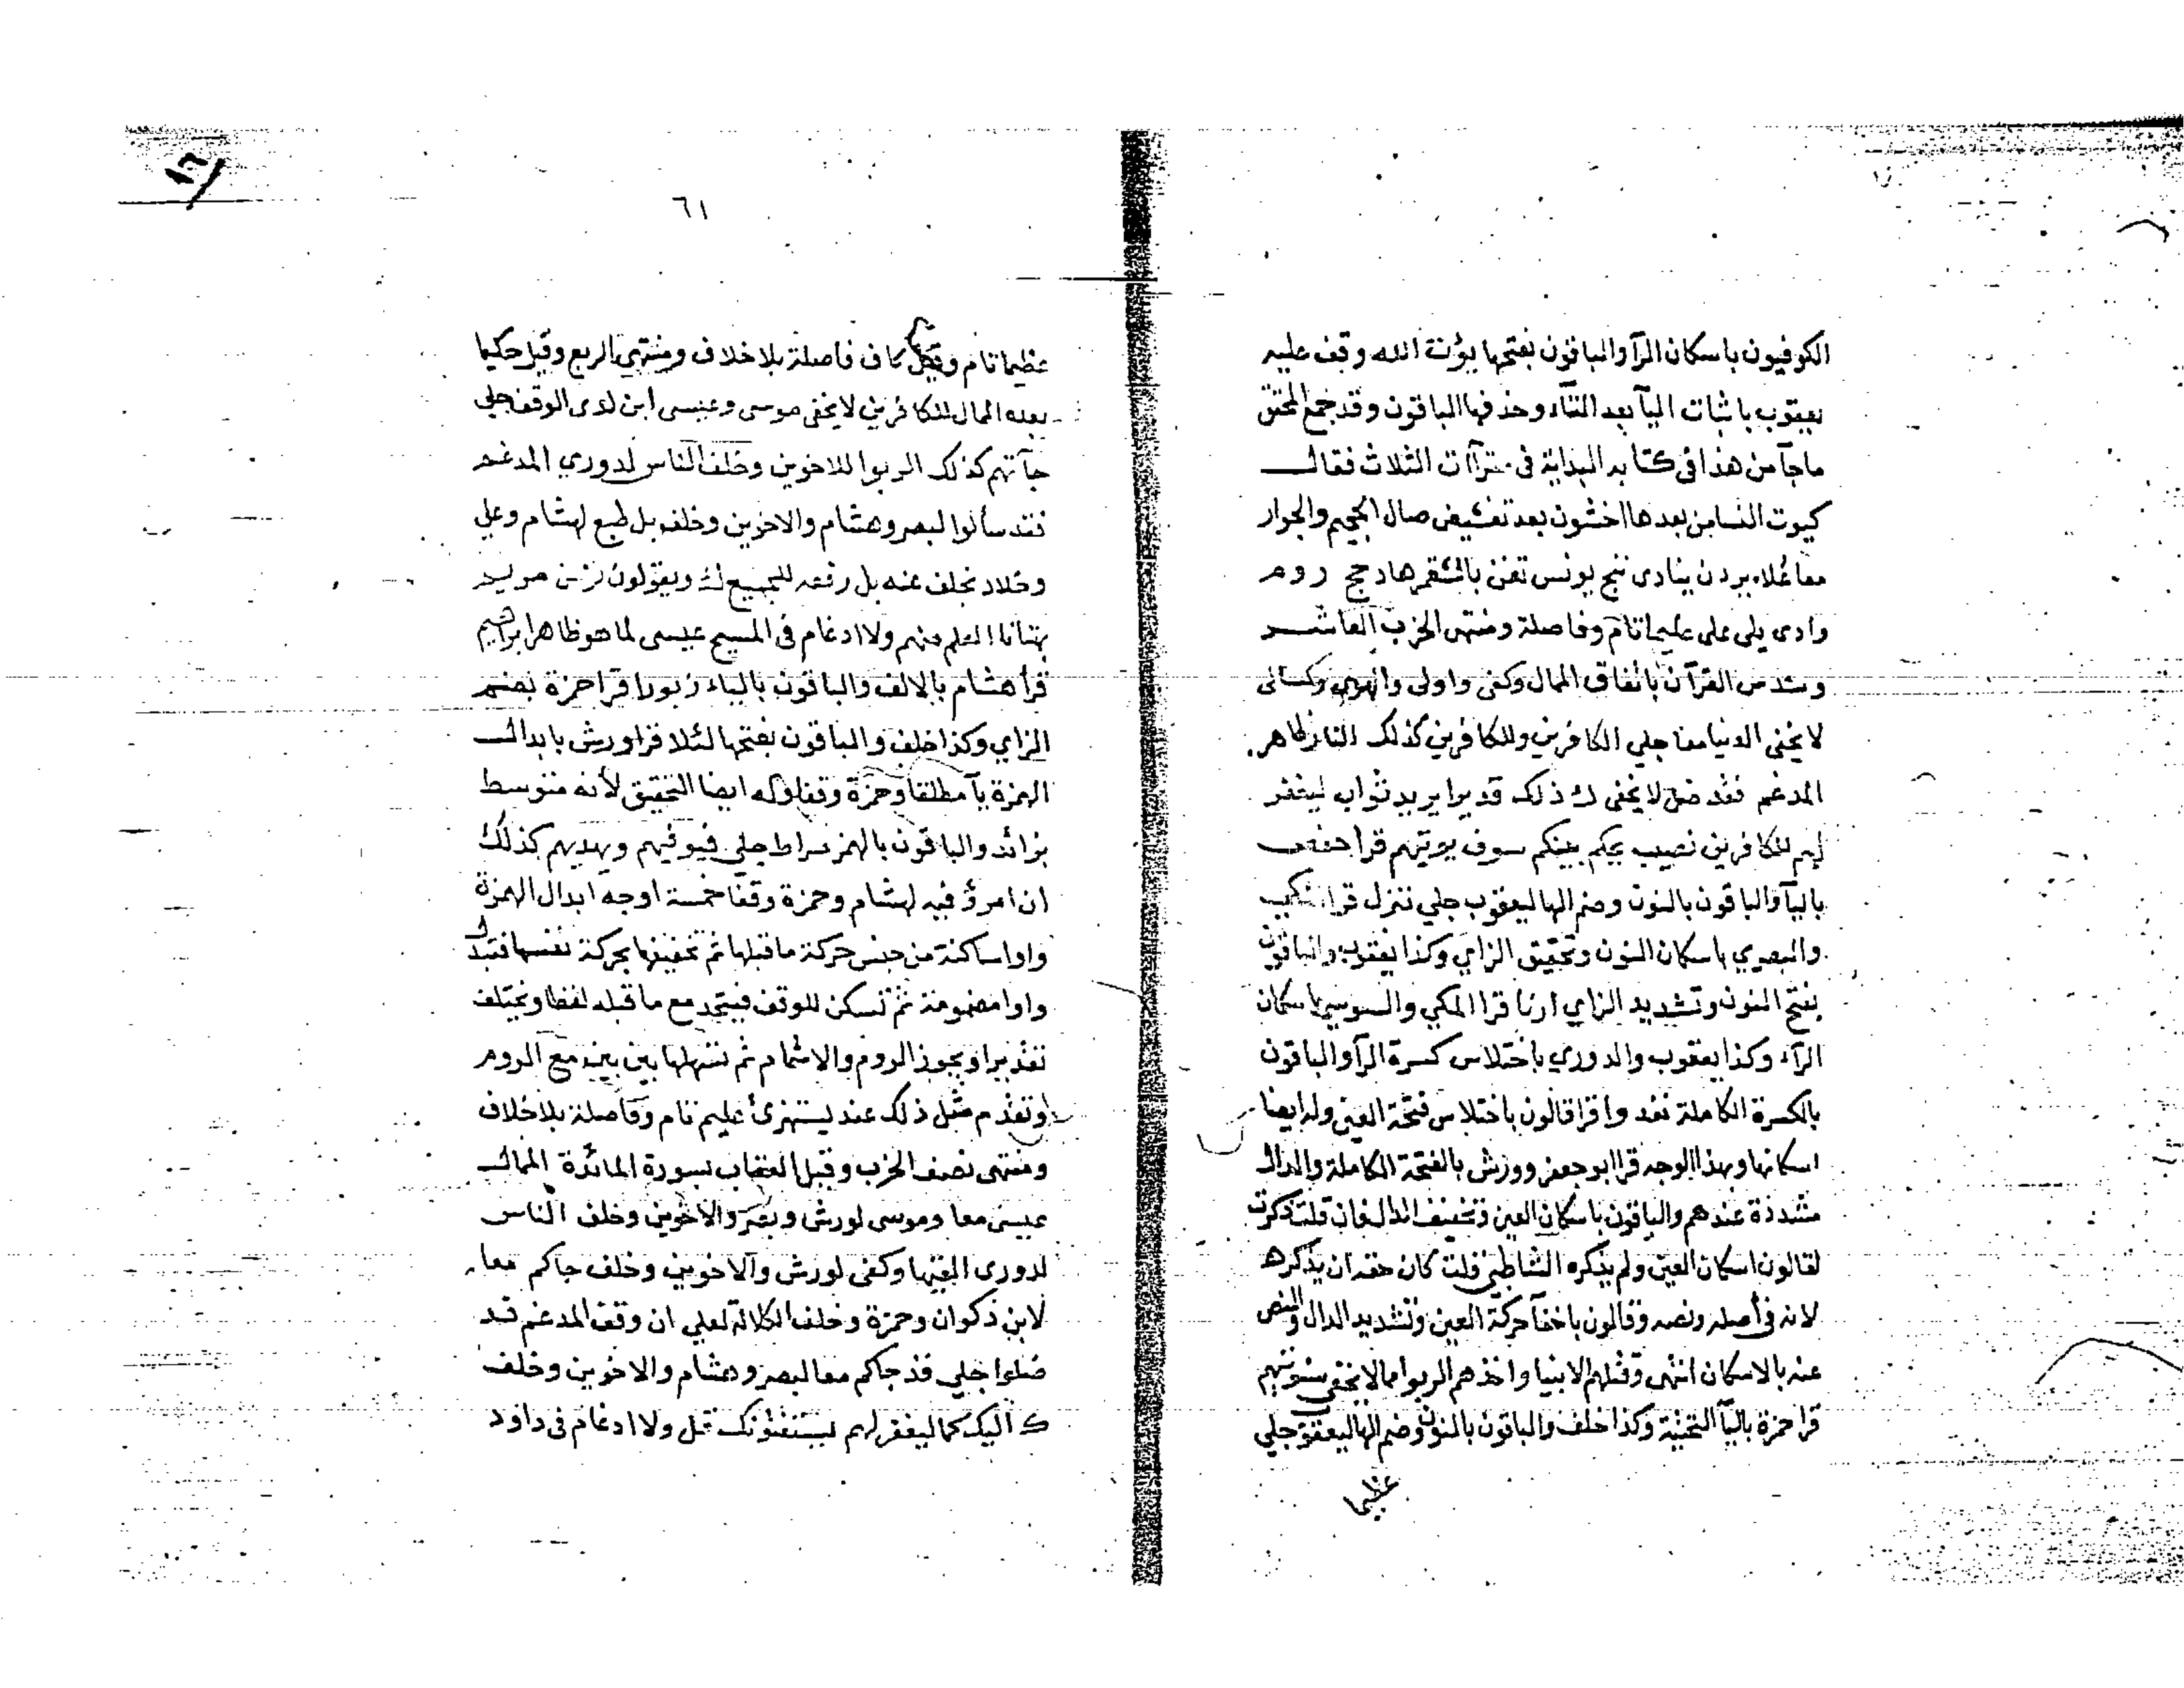 الكوفيون باسكان الرآ والباقون بفتحها يؤت الله وقف عليه
يعقوب باثبات اليآ بعد التآء وحذفها الباقون وقد جمع المحقق
ماجآ من هذا في كتابه الهداية في الثلاث فقال
كيوت النسا من بعدها اخشون بعد تقض صال الجحيم والجوار
معا علاه يردن ينادى ننج يونس تغن بالقمر هاد حج روم
وادى يلى على عليما تام وفاصلة ومنتهى الحزب العاشر
وسدس القرآن باتفاق الممال وكفى واولى والهوى وكسالى
لا يخفى الدنيا معا جلي الكافرين وللكافرين كذلك الناس ظاهر.
المدغم فقد ضل لا يخفى ك ذلك قديرا يريد ثواب ليغفر
لهم للكافرين نصيب يحكم بينكم سوف يؤتيهم قرا حفص
باليآ والباقون بالنون وضم الها ليعقوب جلي تنزل قرا المكي
والبصري باسكان النون وتخفيف الزاي وكذا يعقوب والباقون
بفتح النون وتشديد الزاي ارنا قرا المكي والسوسي باسكان
الرآء وكذا يعقوب والدوري باختلاس كسرة الرآ والباقون
بالكسرة الكاملة تعد وا قرا قالون باختلاس فتحة العين وله ايضا
اسكانها وبهذا الوجه قرا ابو جعفر وورش بالفتحة الكاملة والدال
مشددة عندهم والباقون باسكان العين وتخفيف الدال فان قلت ذكرت
لقالون اسكان العين ولم يذكره الشاطبي قلت كان حقه ان يذكره
لانه في اصله ونصه وقالون باخفآ حركة العين وتشديد الدال والنص
عنه بالاسكان انتهى وقتلهم الانبيا واخذهم الربوا مما لا يخفى سنوتيهم
قرا حمزة باليآ التحتية وكذا خلف والباقون بالنون وضم الها ليعقوب جلي
عظيما
٦١
عظيما تام وقيل كاف فاصلة بلا خلاف ومنتهى الربع وقيل حكيما
بعده الممال للكافرين لا يخفى موسى وعيسى ابن لدى الوقف جلي
جآتهم كذلك الربوا للاخوين وخلف الناس لدوري المدغم
فقد سألوا لبصر وهشام والاخوين وخلف بل طبع لهشام وعلي
وخلاد بخلف عنه بل رفعه للجميع ك ويقولون نؤمن مريم
بهتانا العلم منهم ولا ادغام في المسيح عيسى لما هو ظاهر ابراهيم
قرأ هشام بالالف والباقون بالياء زبورا قرأ حمزة بضم
الزاي وكذا خلف والباقون بفتحها لئلا قرا ورش بابدال
الهمزة يآ مطلقا وحمزة وقفا وله ايضا التحقيق لأنه متوسط
بزائد والباقون بالهمز سراط جلي فيوفيهم ويهديهم كذلك
ان امرؤ فيه لهشام وحمزة وقفا خمسة اوجه ابدال الهمزة
واوا ساكنة من جنس حركة ما قبلها ثم تخفيفها بحركة نفسها فتبدل
واوا مضمومة ثم تسكن للوقف فيتحد مع ما قبله لفظا ويختلف
تقديرا ويجوز الروم والاشمام ثم تسهيلها بين بين مع الروم
وتقدم مثل ذلك عند يستهزئ عليم تام وفاصلة بلا خلاف
ومنتهى نصف الحزب وقبل العقاب بسورة المائدة الممال
عيسى معا وموسى لورش وبصر والاخوين وخلف الناس
لدورى القيها وكفى لورش والاخوين وخلف جاكم معا
لابن ذكوان وحمزة وخلف الكلالة لعلي ان وقف المدغم قد
ضلوا جلي قد جاكم معا لبصر وهشام والاخوين وخلف
ك اليك كما ليغفر لهم يستفتونك قل ولا ادغام في داود